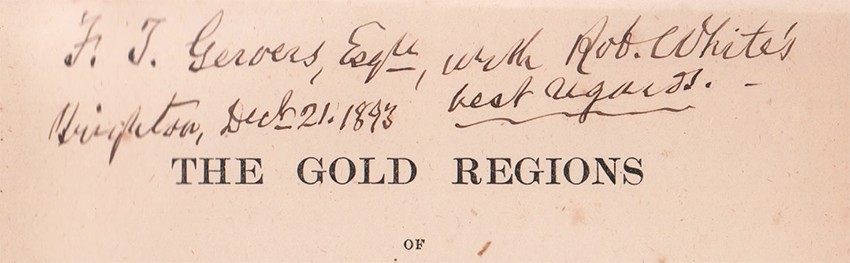 F. T. Gervers, Esqre, with Rob. White's
best regards. -
Brighton, Decr 21. 1893
THE GOLD REGIONS
OF